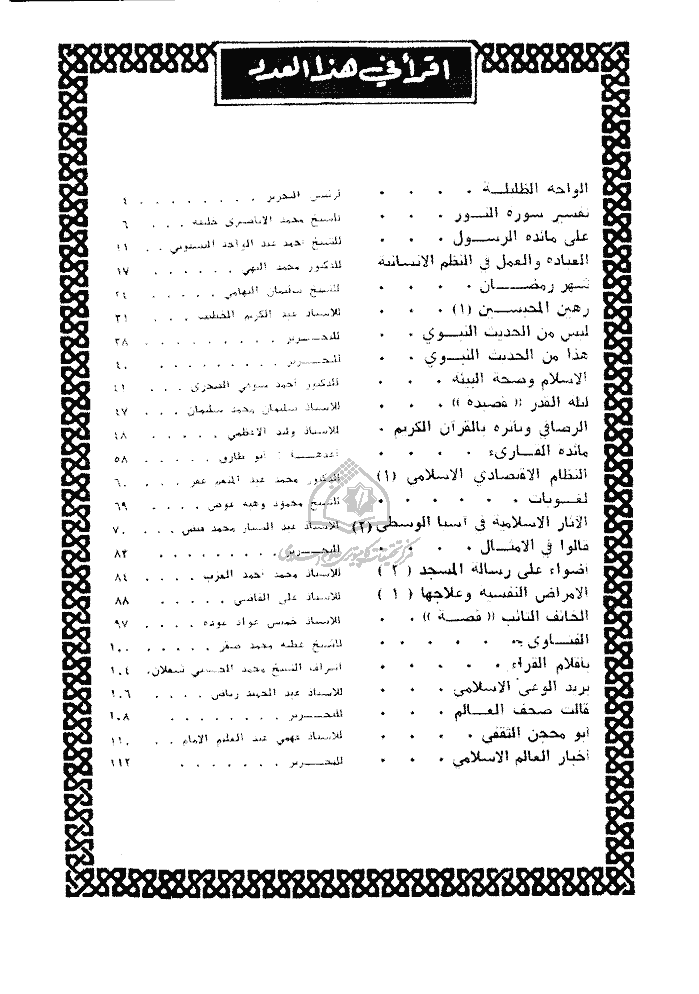 اقرأ في هذا العدد
الواحه الظليلـــة . . . . لرئيس التحرير . . . . . . . . ٤
تفسير سوره النـــور . . . للشيخ محمد الاباصيرى خليفه . . . ٦
على مائده الرســـول . . . للشيخ احمد عبد الواحد البسيوني . . ١١
العباده والعمل في النظم الانسانية للدكتور محمد البهي . . . . . . ١٧
شهر رمضـــان . . . . للشيخ سليمان التهامي . . . . ٢٤
رهين المحبسـين (١) . . . للاستاذ عبد الكريم الخطيب . . . ٣١
ليس من الحديث النبـوي . . للتحـــرير . . . . . . . . . ٣٨
هذا من الحديث النبـوي . . للتحـــرير . . . . . . . . . ٤٠
الاسلام وصحة البيئه . . . للدكتور احمد شوقي الفنجري . . . ٤١
ليله القدر (( قصيده )) . . . للاستاذ سليمان محمد سليمان . . . ٤٧
الرصافي وتأثره بالقرآن الكريم . للاستاذ وليد الاعظمي . . . . . ٤٨
مائده القــارىء . . . . أعدهـــا : أبو طارق . . . . . ٥٨
النظام الاقتصادي الاسلامى (١) للدكتور محمد عبد المنعم عفر . . . ٦٠
لغـــويات . . . . . . للشيخ محمود وهبه عوض . . . . ٦٩
الآثار الاسلامية في آسيا الوسطى (٢) للاستاذ عبد الستار محمد فيض . . . ٧٠
قالوا في الامثـــال . . . . للتحـــرير . . . . . . . . ٨٣
اضواء على رساله المسجد ( ٢ ) للاستاذ محمد احمد العزب . . . ٨٤
الامراض النفسيه وعلاجها ( ١ ) للاستاذ على القاضي . . . . . ٨٨
الخائف التائب (( قصـــة )) . . للاستاذ خميس عواد عوده . . . . ٩٧
الفتـــاوى . . . . . . للشيخ عطيه محمد صقر . . . . . ١٠٠
بأقلام القراء . . . . . اشراف الشيخ محمد الحسيني شعلان . ١٠٤
بريد الوعى الاسلامي . . . للاستاذ عبد الحميد رياض . . . . ١٠٦
قالت صحف العـــالم . . . للتحـــرير . . . . . . . . ١٠٨
أبو محجن الثقفي . . . . للاستاذ فهمي عبد العليم الامام . . ١١٠
أخبار العالم الاسلامي . . . للتحـــرير . . . . . . . ١١٢